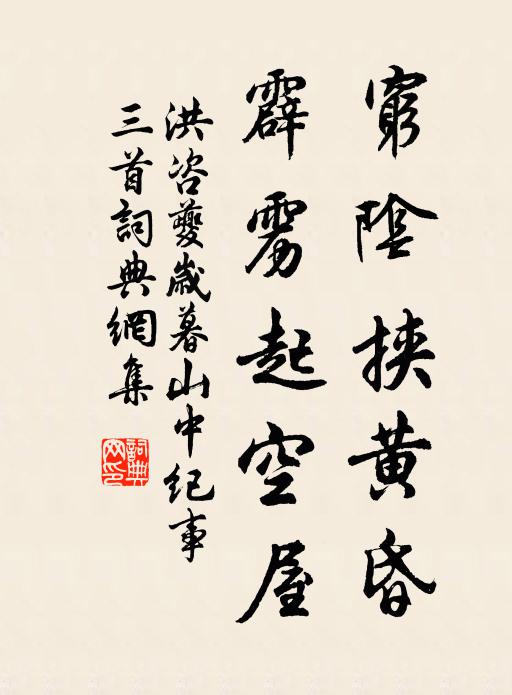 窮陰挾黃昏
霹雳起空屋
洪咨夔歲暮山中纪事
三首詞典網集
詞典网印